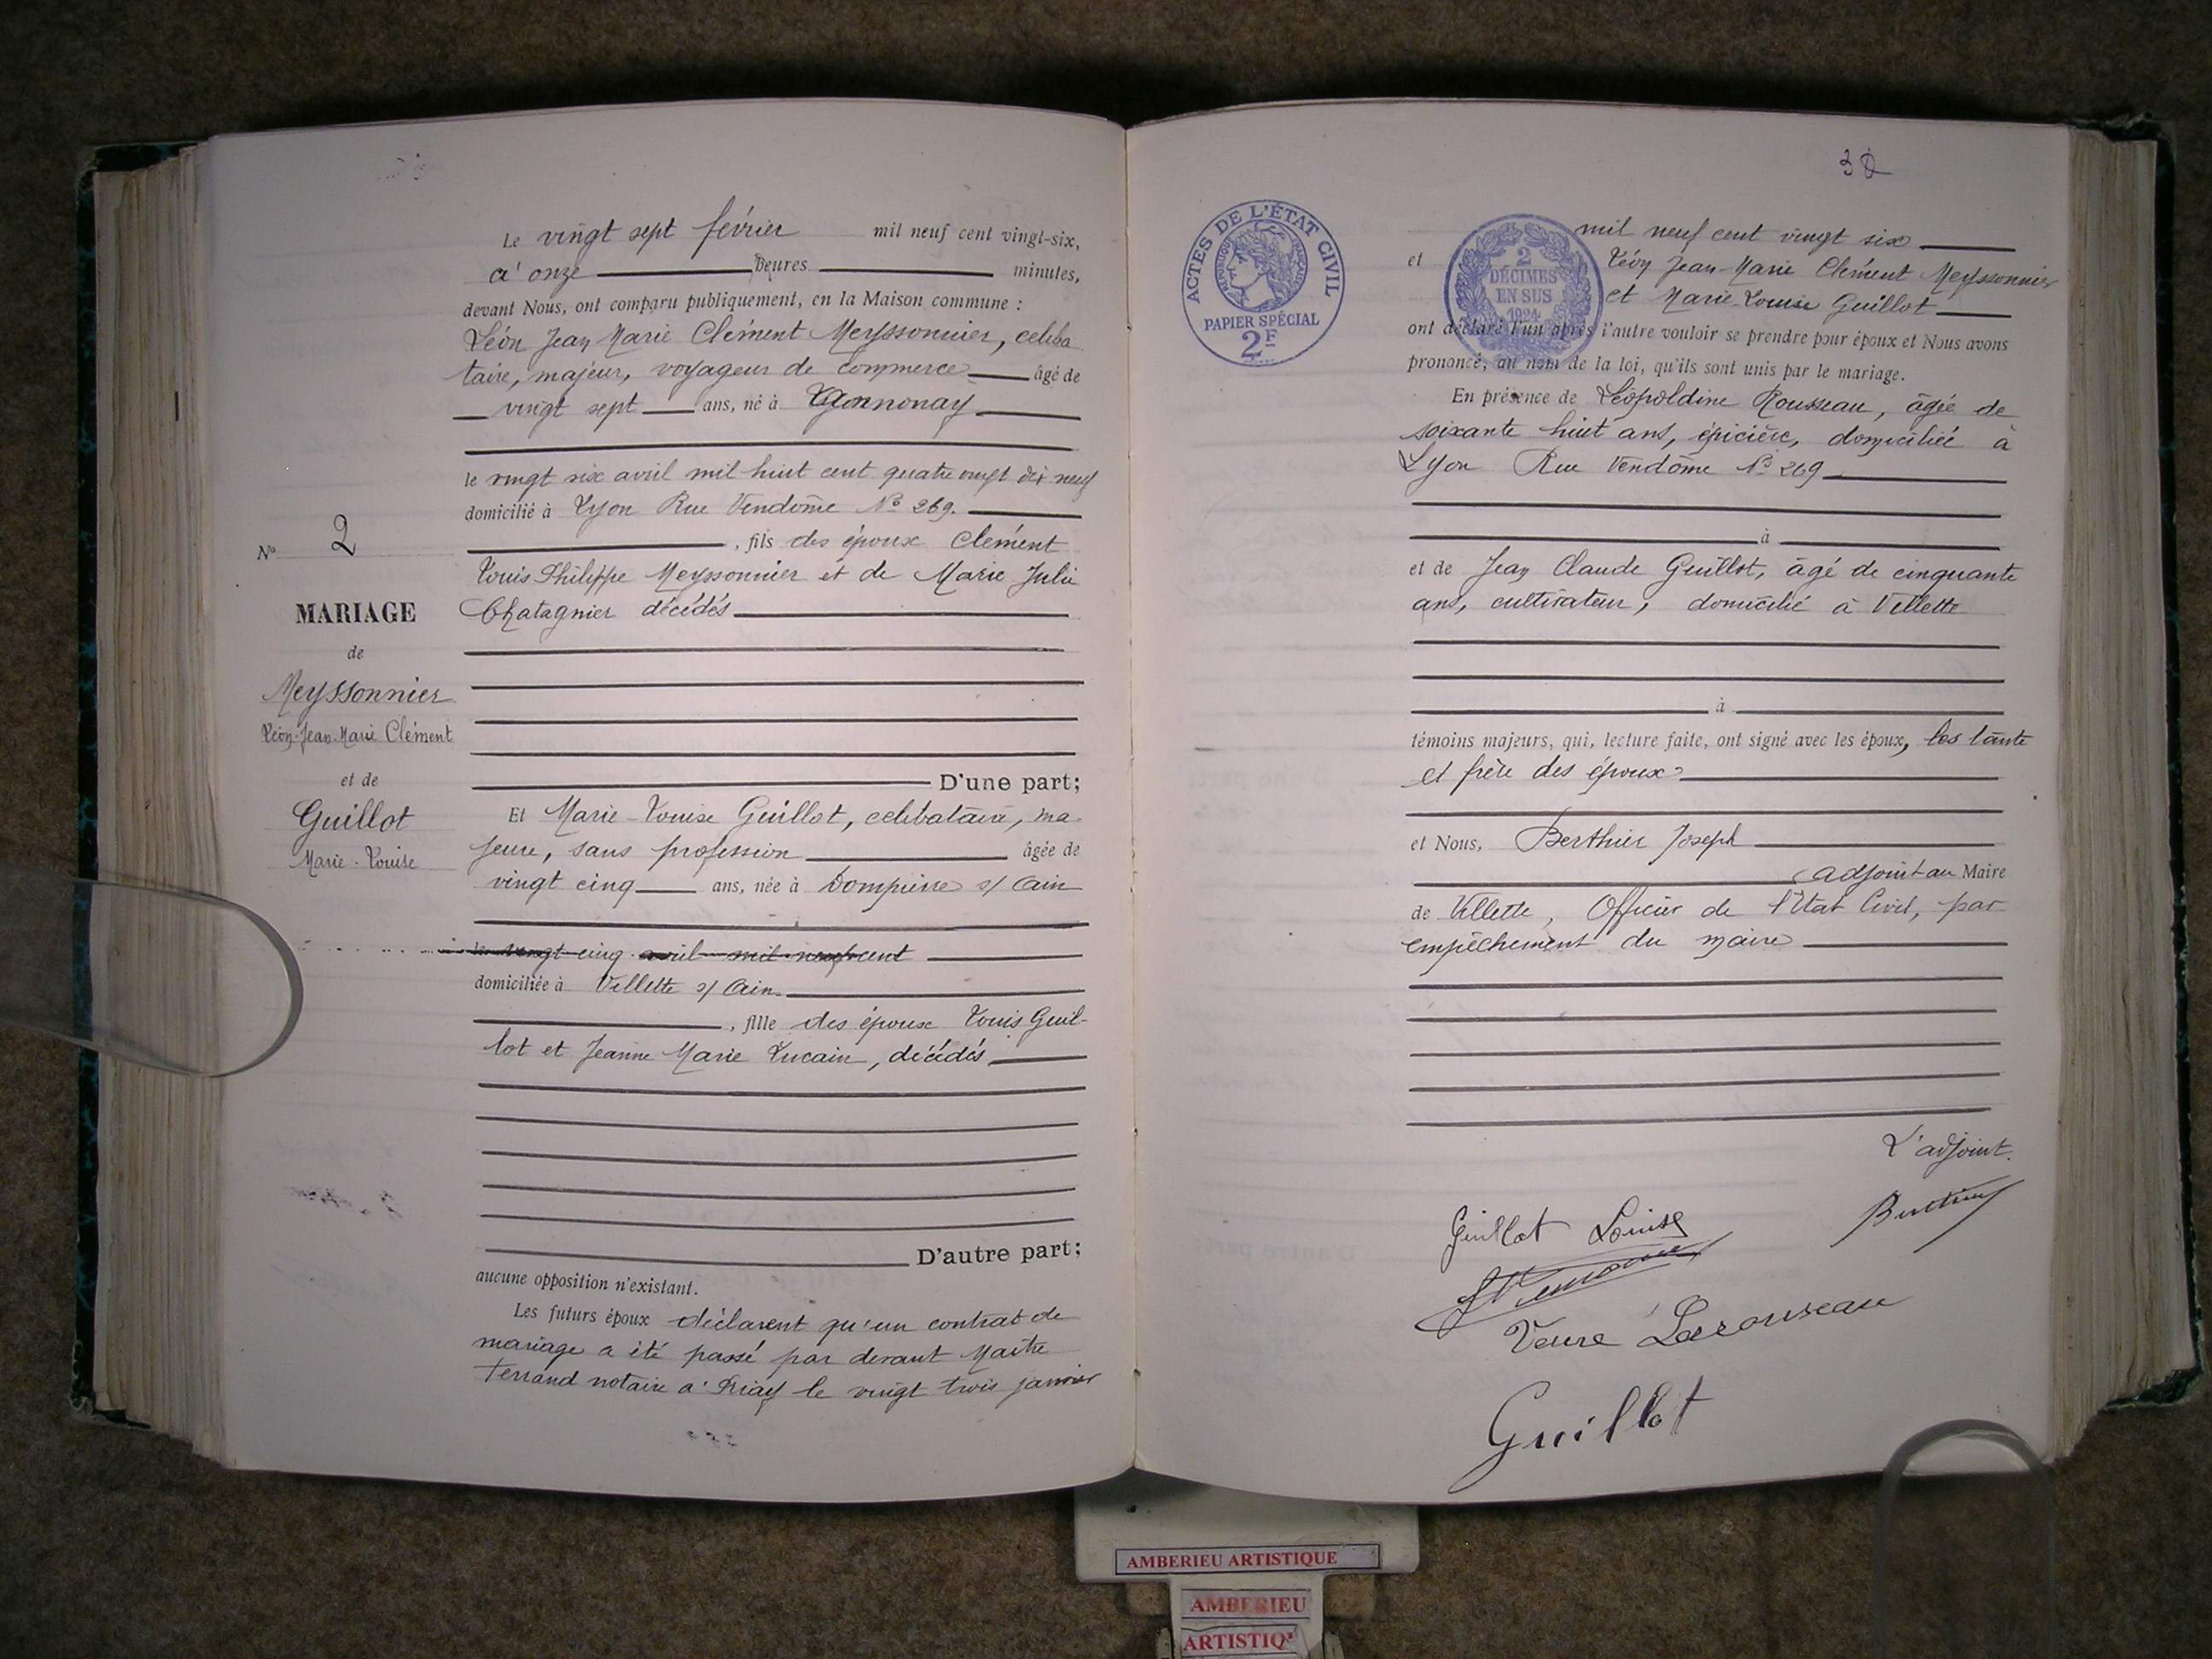 Le vingt sept février mil neuf cent vingt-six,
à onze heures minutes,
devant Nous, ont comparu publiquement, en la Maison commune :
Léon Jean Marie Clément Meyssonnier, céliba
taire, majeur, voyageur de commerce âgé de
vingt sept ans, né à Annonay
le vingt six avril mil huit cent quatre vingt dix neuf
domicilié à Lyon Rue Vendôme No 269.
, fils des époux Clément
Louis Philippe Meyssonnier et de Marie Julie
Chatagnier décédés
No 2
MARIAGE
de
Meyssonnier
Léon-Jean-Marie Clément
et de
Guillot
Marie-Louise
D'une part;
Et Marie-Louise Guillot, célibataire, ma-
jeure, sans profession âgée de
vingt cinq ans, née à Dompierre s/ Ain
le vingt cinq avril mil neuf cent
domiciliée à Villette s/ Ain.
, fille des époux Louis Guil-
lot et Jeanne Marie Lucain, décédés
D'autre part;
aucune opposition n'existant.
Les futurs époux déclarent qu'un contrat de
mariage a été passé par devant Maître
Ferrand notaire à Priay le vingt trois janvier
ACTES DE L'ÉTAT CIVIL
RÉPUBLIQUE FRANÇAISE
PAPIER SPÉCIAL
2F
2
DÉCIMES
EN SUS
1924
mil neuf cent vingt six
et Léon Jean-Marie Clément Meyssonnier
et Marie-Louise Guillot
ont déclaré l'un après l'autre vouloir se prendre pour époux et Nous avons
prononcé, au nom de la loi, qu'ils sont unis par le mariage.
En présence de Léopoldine Rousseau, âgée de
soixante huit ans, épicière, domiciliée à
Lyon Rue Vendôme No 269
à
et de Jean Claude Guillot, âgé de cinquante
ans, cultivateur, domicilié à Villette
à
témoins majeurs, qui, lecture faite, ont signé avec les époux, les tante
et frère des époux
et Nous, Berthier Joseph
adjoint au Maire
de Villette, Officier de l'Etat Civil, par
empêchement du maire
L'adjoint.
Guillot Louise
Guillot
AMBERIEU ARTISTIQUE
AMBERIEU
ARTISTIQ